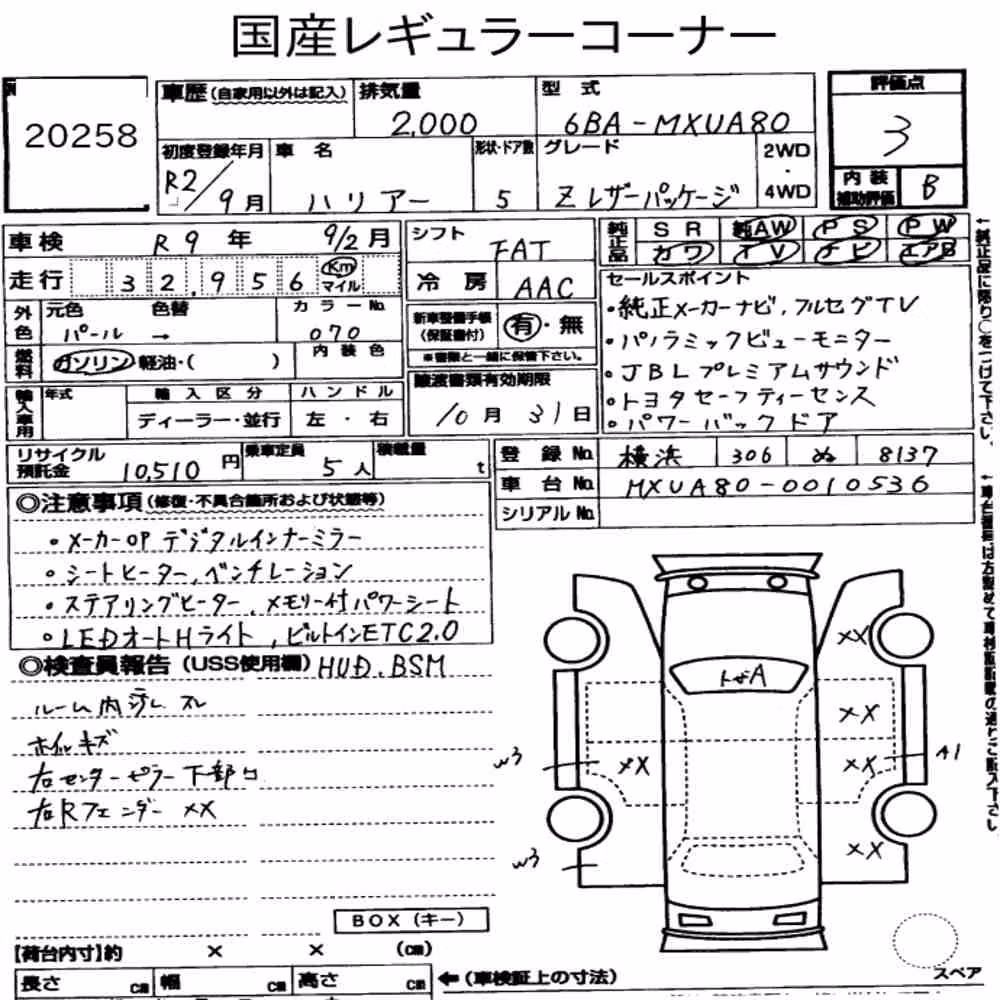 国産レギュラーコーナー
20258
車歴(自家用以外は記入)
排気量 2,000
型式 6BA-MXUA80
評価点 3
内装補助評価 B
初度登録年月 R2/9月
車名 ハリアー
形状・ドア数 5
グレード Zレザーパッケージ
2WD・4WD
車検 R9年 9/2月
シフト FAT
純正品 SR 純AW PS PW
カワ TV ナビ エアB
走行 32,956 Km マイル
冷房 AAC
セールスポイント
・純正メーカーナビ,フルセグTV
・パノラミックビューモニター
・JBLプレミアムサウンド
・トヨタセーフティーセンス
・パワーバックドア
外色 元色 パール 色替 →
カラーNo. 070
新車整備手帳(保証書付) 有・無
※書類と一緒に保管下さい。
燃料 ガソリン 軽油・( )
内装色
輸入車用 年式
輸入区分 ディーラー・並行
ハンドル 左・右
譲渡書類有効期限
10月31日
リサイクル預託金 10,510円
乗車定員 5人
積載量 t
登録No. 横浜 306 ぬ 8137
車台No. MXUA80-0010536
シリアルNo.
◎注意事項(修復・不具合箇所および状態等)
・メーカーOPデジタルインナーミラー
・シートヒーター,ベンチレーション
・ステアリングヒーター,メモリー付パワーシート
・LEDオートHライト,ビルトインETC2.0
◎検査員報告(USS使用欄) HUD.BSM
ルーム内汚レ スレ
ホイルキズ
右センターピラー下部
右Rフェンダー XX
BOX(キー)
【荷台内寸】約 × × (cm)
長さ cm 幅 cm 高さ cm
←(車検証上の寸法)
XX
A
XX
W3 XX
XX A1
W3
XX
スペア
←純正品に限り○をつけて下さい。